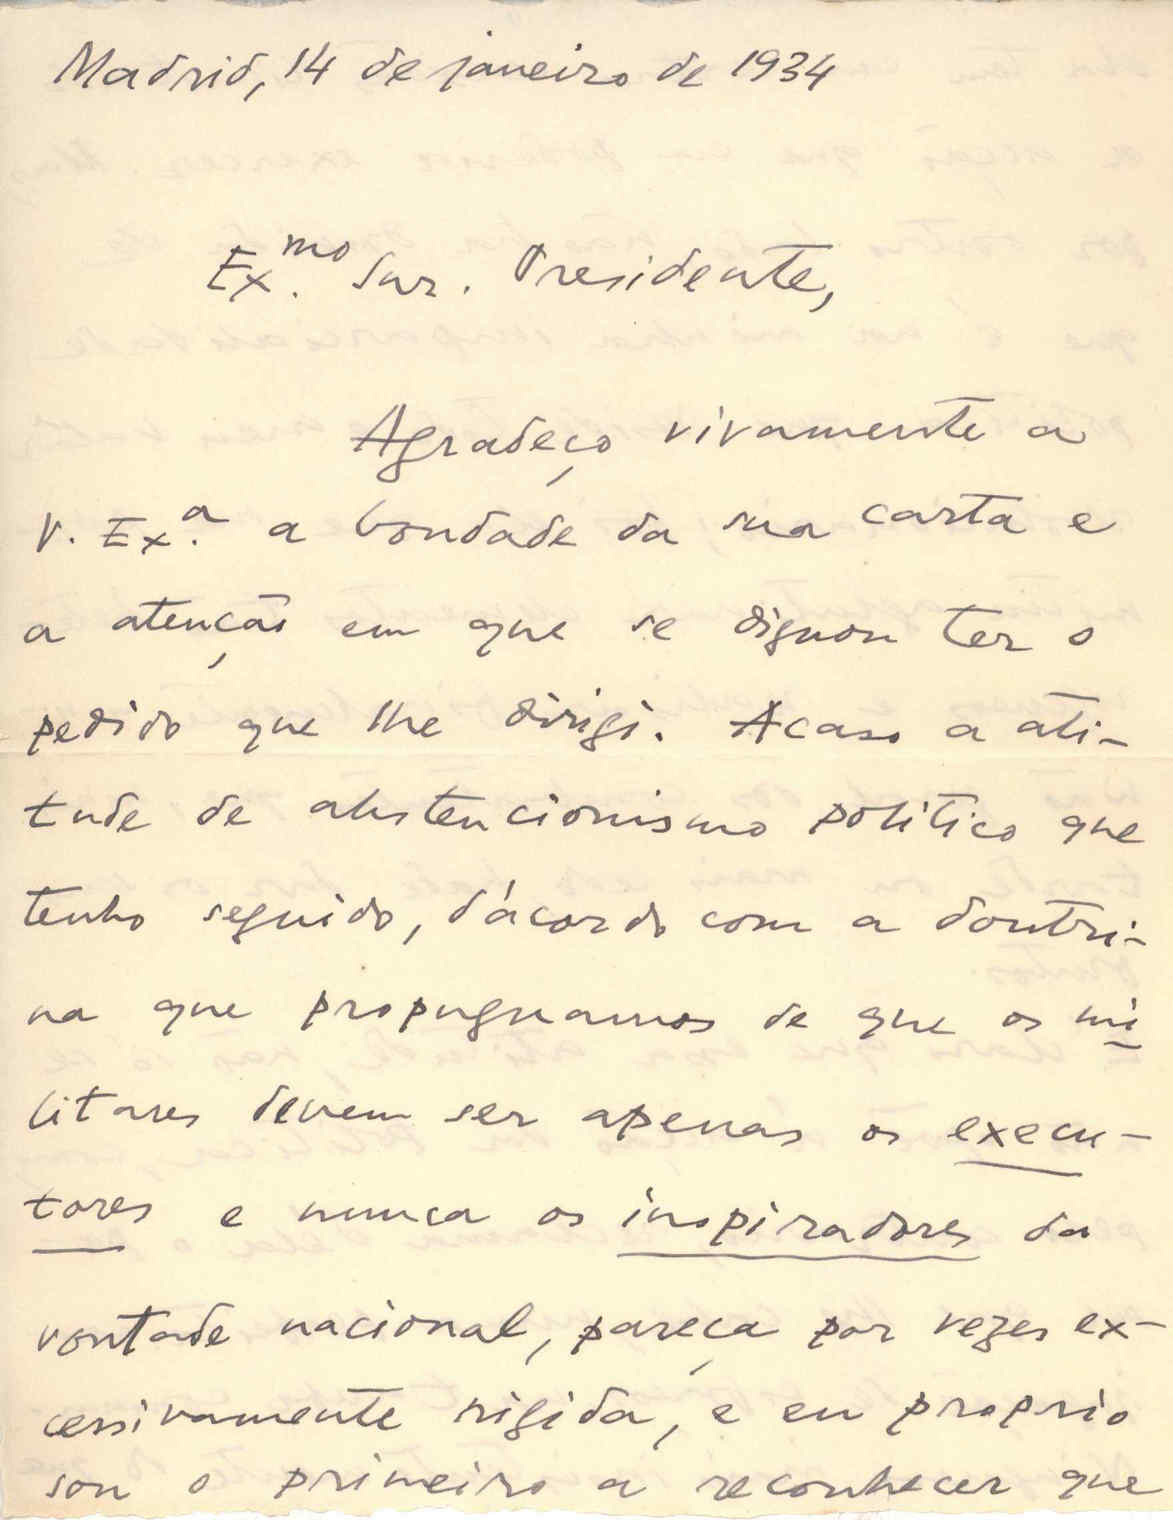 Madrid, 14 de janeiro de 1934
Ex.mo Snr. Presidente,
Agradeço vivamente a
V. Ex.a a bondade da sua carta e
a atenção em que se dignou ter o
pedido que lhe dirigi. Acaso a ati-
tude de abstencionismo politico que
tenho seguido, d'ácordo com a doutri-
na que propugnamos de que os mi
litares devem ser apenas os execu-
tores e nunca os inspiradores da
vontade nacional, pareça por vezes ex-
cessivamente rigida, e eu proprio
sou o primeiro a reconhecer que